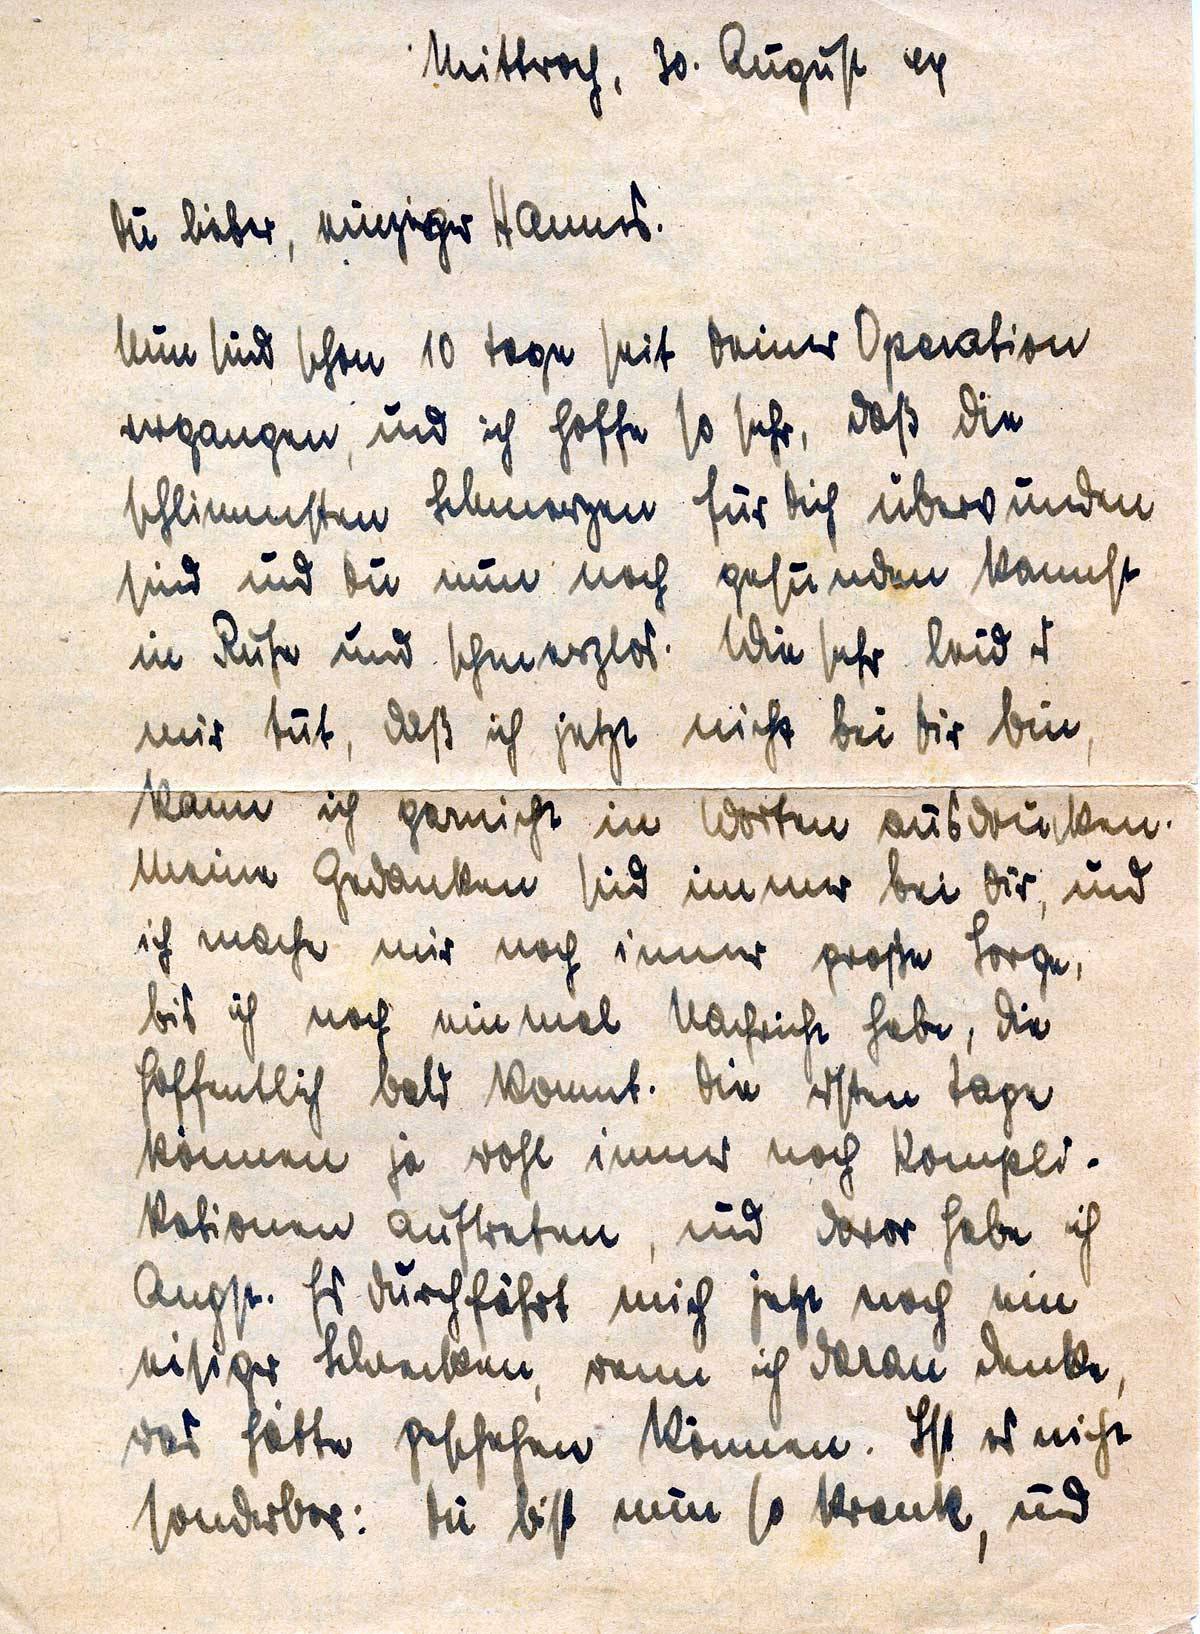 Mittwoch, 30. August 44
Du lieber, einziger Hannes.
Nun sind schon 10 Tage seit Deiner Operation
vergangen, und ich hoffe so sehr, daß die
schlimmsten Schmerzen für Dich überwunden
sind und Du nun noch gesunden kannst
in Ruhe und schmerzlos. Wie sehr leid es
mir tut, daß ich jetzt nicht bei Dir bin,
kann ich garnicht in Worten ausdrücken.
Meine Gedanken sind immer bei Dir, und
ich mache mir noch immer große Sorge,
bis ich noch einmal Nachricht habe, die
hoffentlich bald kommt. Die ersten Tage
können ja wohl immer noch Kompli-
kationen auftreten, und davor habe ich
Angst. Es durchfährt mich jetzt noch ein
eisiger Schrecken, wenn ich daran denke,
was hätte geschehen können. Ist es nicht
sonderbar: Du bist nun so krank, und